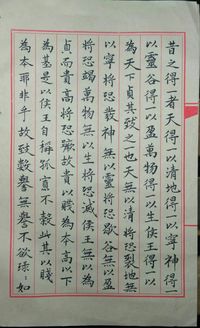 昔之得一者天得一以清地得一以寧神得一
以靈谷得一以盈萬物得一以生侯王得一以
為天下貞其致之也天無以清將恐裂地無
以寧將恐發神無以靈將恐歇谷無以盈
將恐竭萬物無以生將恐滅侯王無以為
貞而貴高將恐蹶故貴以賤為本高以下
為基是以侯王自稱孤寡不穀此其以賤
為本耶非乎故致數譽無譽不欲琭〻如